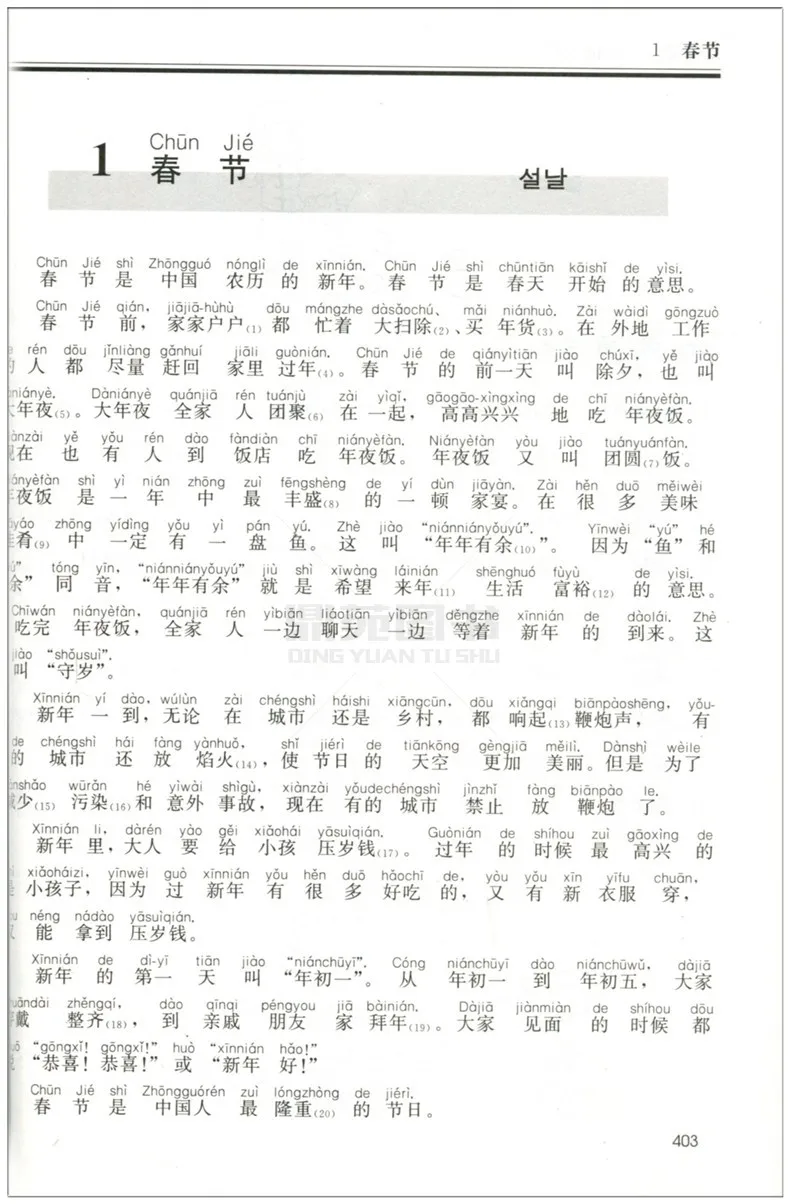 1 春节
Chūn Jié
1 春 节 설날
Chūn Jié shì Zhōngguó nónglì de xīnnián. Chūn Jié shì chūntiān kāishǐ de yìsi.
春 节 是 中国 农历 的 新年。 春 节 是 春天 开始 的 意思。
Chūn Jié qián, jiājiā-hùhù dōu mángzhe dàsǎochú、 mǎi niánhuò. Zài wàidì gōngzuò
春 节 前, 家家户户(1) 都 忙着 大扫除(2)、买 年货(3)。在 外地 工作
rén dōu jǐnliàng gǎnhuí jiāli guònián. Chūn Jié de qiányìtiān jiào chúxī, yě jiào
人 都 尽量 赶回 家里 过年(4)。 春 节 的 前一天 叫 除夕, 也 叫
Dàniányè quánjiā rén tuánjù zài yìqǐ, gāogāo-xìngxìng de chī niányèfàn.
大年夜(5)。大年夜 全家 人 团聚(6) 在 一起, 高高兴兴 地 吃 年夜饭。
yě yǒu rén dào fàndiàn chī niányèfàn. Niányèfàn yòu jiào tuányuánfàn.
现在 也 有 人 到 饭店 吃 年夜饭。 年夜饭 又 叫 团圆(7)饭。
shì yì nián zhōng zuì fēngshèng de yí dùn jiāyàn. Zài hěn duō měiwèi
年夜饭 是 一 年 中 最 丰盛(8) 的 一 顿 家宴。 在 很 多 美味
zhōng yídìng yǒu yì pán yú. Zhè jiào “niánniányǒuyú”. Yīnwèi “yú” hé
佳肴(9) 中 一定 有 一 盘 鱼。 这 叫 “年年有余(10)”。 因为 “鱼” 和
tóng yīn, “niánniányǒuyú” jiù shì xīwàng láinián shēnghuó fùyù de yìsi.
余” 同 音, “年年有余” 就 是 希望 来年(11) 生活 富裕(12) 的 意思。
Chīwán niányèfàn, quánjiā rén yìbiān liáotiān yìbiān děngzhe xīnnián de dàolái. Zhè
吃完 年夜饭, 全家 人 一边 聊天 一边 等着 新年 的 到来。 这
jiào “shǒusuì”.
叫 “守岁”。
鼎元图书
DING YUAN TU SHU
Xīnnián yí dào, wúlùn zài chéngshì háishi xiāngcūn, dōu xiǎngqi biānpàoshēng, yǒu-
新年 一 到, 无论 在 城市 还是 乡村, 都 响起(13) 鞭炮声, 有
de chéngshì hái fàng yànhuǒ, shǐ jiérì de tiānkōng gèngjiā měilì. Dànshì wèile
的 城市 还 放 焰火(14), 使 节日 的 天空 更加 美丽。但是 为了
wūrǎn hé yìwài shìgù, xiànzài yǒudechéngshì jìnzhǐ fàng biānpào le.
减少(15) 污染(16)和 意外 事故, 现在 有的 城市 禁止 放 鞭炮 了。
Xīnnián li, dàrén yào gěi xiǎohái yāsuìqián. Guònián de shíhou zuì gāoxìng de
新年 里, 大人 要 给 小孩 压岁钱(17)。 过年 的 时候 最 高兴 的
xiǎoháizi, yīnwèi guò xīnnián yǒu hěn duō hǎochī de, yòu yǒu xīn yīfu chuān,
是 小孩子, 因为 过 新年 有 很 多 好吃 的, 又 有 新 衣服 穿,
néng nádào yāsuìqián.
能 拿到 压岁钱。
Xīnnián de dì-yī tiān jiào “niánchūyī”. Cóng niánchūyī dào niánchūwǔ, dàjiā
新年 的 第一 天 叫 “年初一”。 从 年初一 到 年初五, 大家
zhěngqí, dào qīnqi péngyou jiā bàinián. Dàjiā jiànmiàn de shíhou dōu
穿戴 整齐(18), 到 亲戚 朋友 家 拜年(19)。大家 见面 的 时候 都
“gōngxǐ! gōngxǐ!” huò “xīnnián hǎo!”
“恭喜! 恭喜!” 或 “新年 好!”
Chūn Jié shì Zhōngguórén zuì lóngzhòng de jiérì.
春 节 是 中国人 最 隆重(20) 的 节日。
403